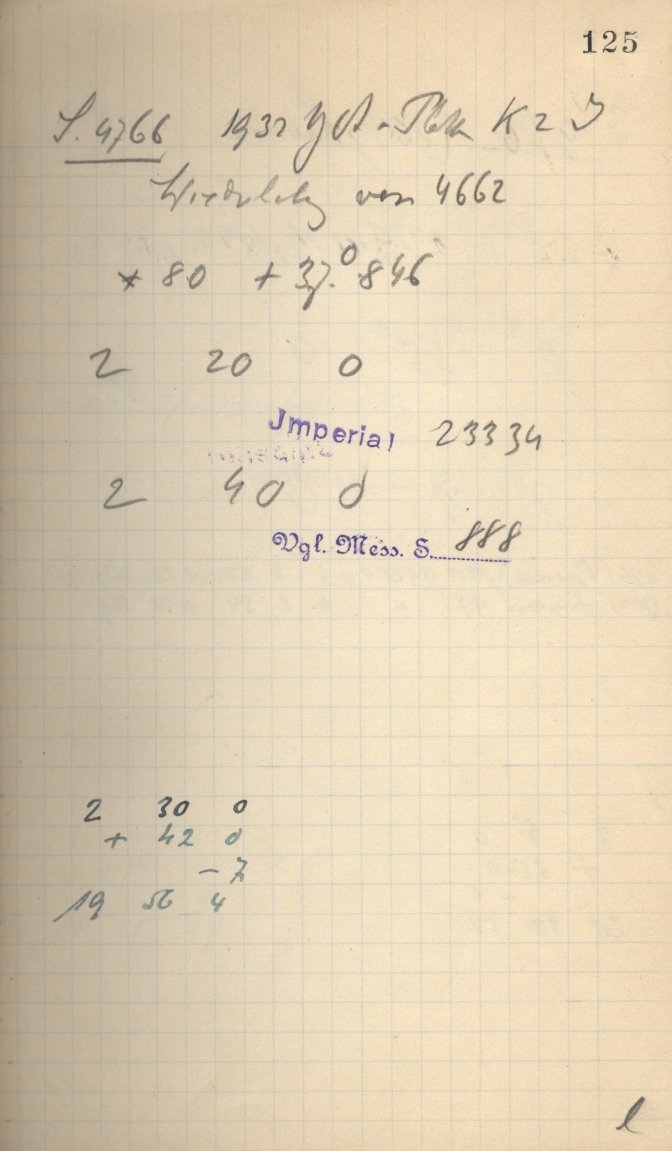 125
S. 4766 1932 Okt. K 2
von 4662
* 80 + 37.° 846
2 20 0
Jmperial 23334
2 40 0
Vgl. Mess. S. 888
2 30 0
+ 42 0
- 7
19 56 4
l